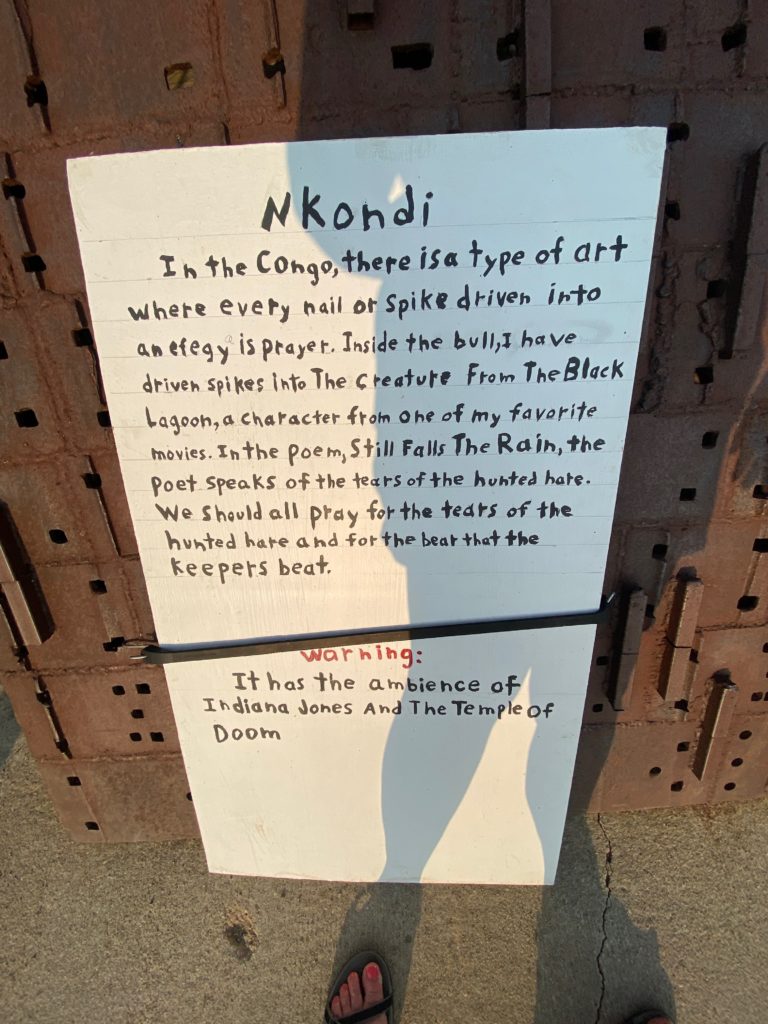 Nkondi
In the Congo, there is a type of art
where every nail or spike driven into
an efegy is prayer. Inside the bull, I have
driven spikes into The Creature From The Black
Lagoon, a character from one of my favorite
movies. In the poem, Still Falls The Rain, the
poet speaks of the tears of the hunted hare.
We should all pray for the tears of the
hunted hare and for the bear that the
keepers beat.
Warning:
It has the ambience of
Indiana Jones And The Temple Of
Doom